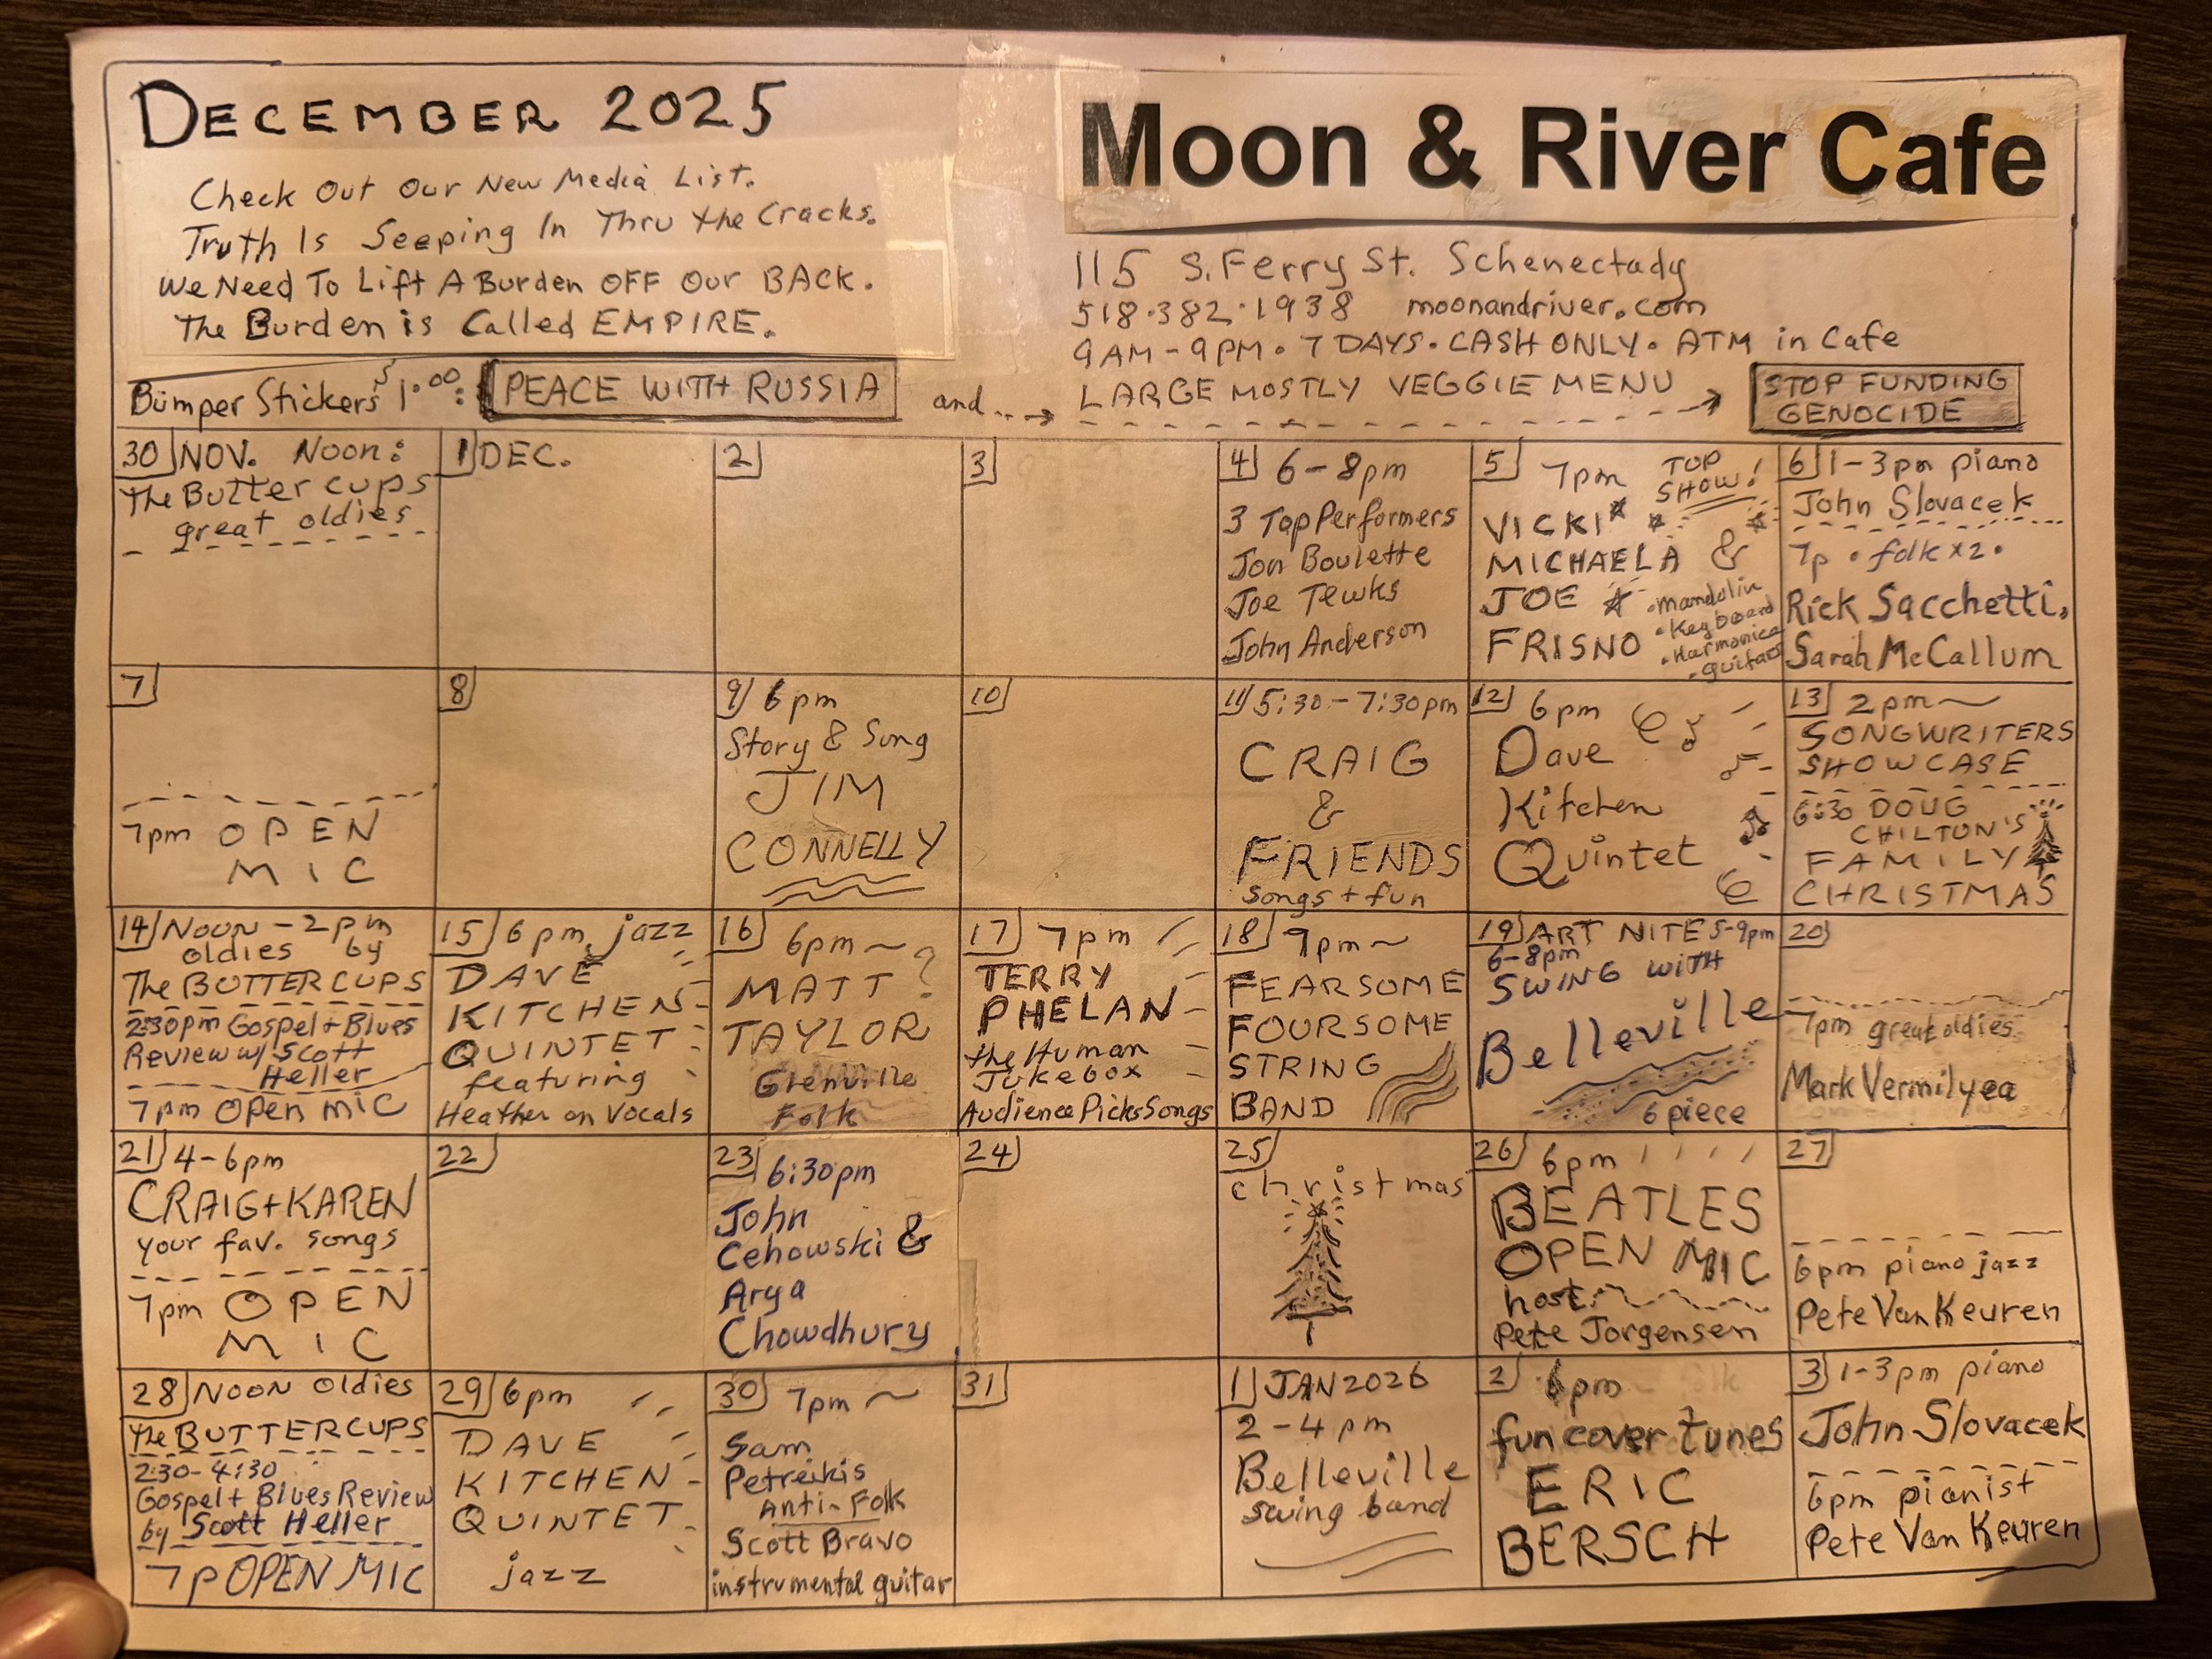 DECEMBER 2025
Check Out Our New Media List.
Truth Is Seeping In Thru the Cracks.
We Need To Lift A Burden OFF Our BACK.
The Burden is Called EMPIRE.
Bumper Stickers $1.00: PEACE WITH RUSSIA and...
Moon & River Cafe
115 S. Ferry St. Schenectady
518·382·1938 moonandriver.com
9AM-9PM. 7 DAYS. CASH ONLY. ATM in Cafe
LARGE MOSTLY VEGGIE MENU
STOP FUNDING
GENOCIDE
30 NOV. Noon:
The Butter cups
great oldies
1 DEC.
2
3
4 6-8pm
3 Top Performers
Jon Boulette
Joe Tewks
John Anderson
5 7pm TOP
SHOW!
VICKI
MICHAELA &
JOE
FRISNO
• mandolin
• Keyboard
• Harmonica
• guitars
6 1-3pm piano
John Slovacek
7p • folk x2 •
Rick Sacchetti,
Sarah McCallum
7
7pm OPEN
MIC
8
9 6pm
Story & Song
JIM
CONNELLY
10
11 5:30-7:30pm
CRAIG
&
FRIENDS
songs + fun
12 6pm
Dave
Kitchen
Quintet
13 2pm~
SONGWRITERS
SHOWCASE
6:30 DOUG
CHILTON'S
FAMILY
CHRISTMAS
14 Noon-2pm
oldies by
The BUTTERCUPS
2:30pm Gospel + Blues
Review w/ Scott
Heller
7pm Open mic
15 6pm jazz
DAVE
KITCHEN
QUINTET
featuring
Heather on Vocals
16 6pm~
MATT
TAYLOR
Glenville
Folk
17 7pm
TERRY
PHELAN
the Human
Jukebox
Audience Picks Songs
18 7pm~
FEARSOME
FOURSOME
STRING
BAND
19 ART NITE 5-9pm
6-8pm
SWING WITH
Belleville
6 piece
20
7pm great oldies
Mark Vermilyea
21 4-6pm
CRAIG+KAREN
your fav. songs
7pm OPEN
MIC
22
23 6:30pm
John
Cehowski &
Arya
Chowdhury
24
25
christmas
26 6pm
BEATLES
OPEN MIC
host
Pete Jorgensen
27
6pm piano jazz
Pete Van Keuren
28 Noon Oldies
The BUTTERCUPS
2:30-4:30
Gospel + Blues Review
by Scott Heller
7p OPEN MIC
29 6pm
DAVE
KITCHEN
QUINTET
jazz
30 7pm~
Sam
Petreikis
Anti-Folk
Scott Bravo
instrumental guitar
31
1 JAN 2026
2-4pm
Belleville
swing band
2 6pm
fun cover tunes
ERIC
BERSCH
3 1-3pm piano
John Slovacek
6pm pianist
Pete Van Keuren